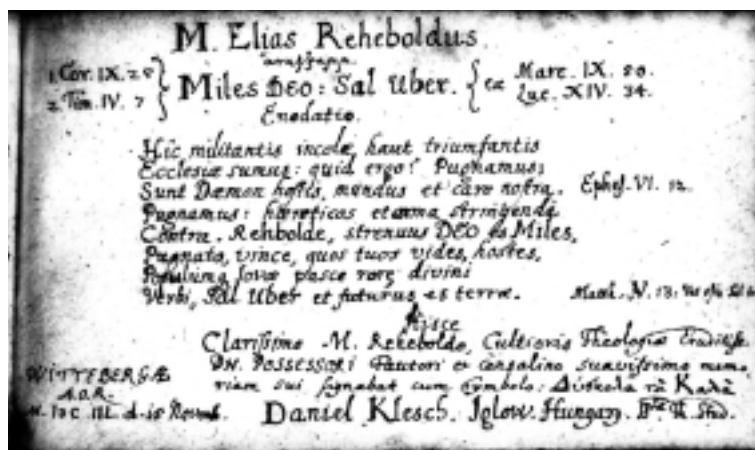 M. Elias Reheboldus
1. Cor. IX. 2
2. Tim. IV. 7
Miles DEO: Sal Uber.
ex
Marc. IX. 50.
Luc. XIV. 34.
Enodatio.
Hic militantis incolæ haut triumfantis
Ecclesiæ sumus: quid ergo? Pugnamus:
Sunt Dæmon hostis, mundus et caro nostra. Ephes. VI. 12.
Pugnamus: hæreticos et arma stringenda
Contra. Rehbolde, strenuus DEO Miles,
Pugnato, vince, quos tuos vides, hostes,
Populum Jovæ pasce rore divini
Verbi, Sal Uber et futurus es terræ. Matth. V. 13.
Hisce
Clarissimo M. Reheboldo, Cultioris Theologiæ
DN. POSSESSORI Fautori et suavissimo memo-
riam sui signabat cum Symbolo: Δύσκολα τὰ Καλά
WITTEBERGÆ
Daniel Klesch. Iglow. Hungar. Stud.